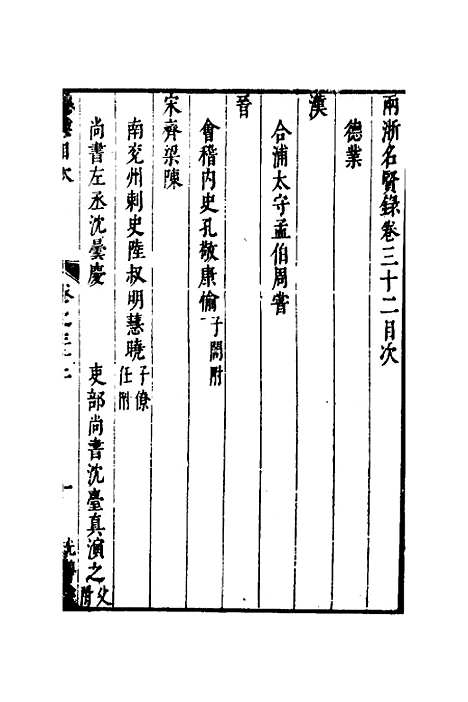 兩浙名賢錄卷三十二目次
德業
漢
合浦太守孟伯周嘗
晉
會稽內史孔敬康愉子誾附
宋齊梁陳
南兗州刺史陸叔明慧曉子僚任附
尚書左丞沈曇慶 吏部尚書沈臺真演之父附
目次
一